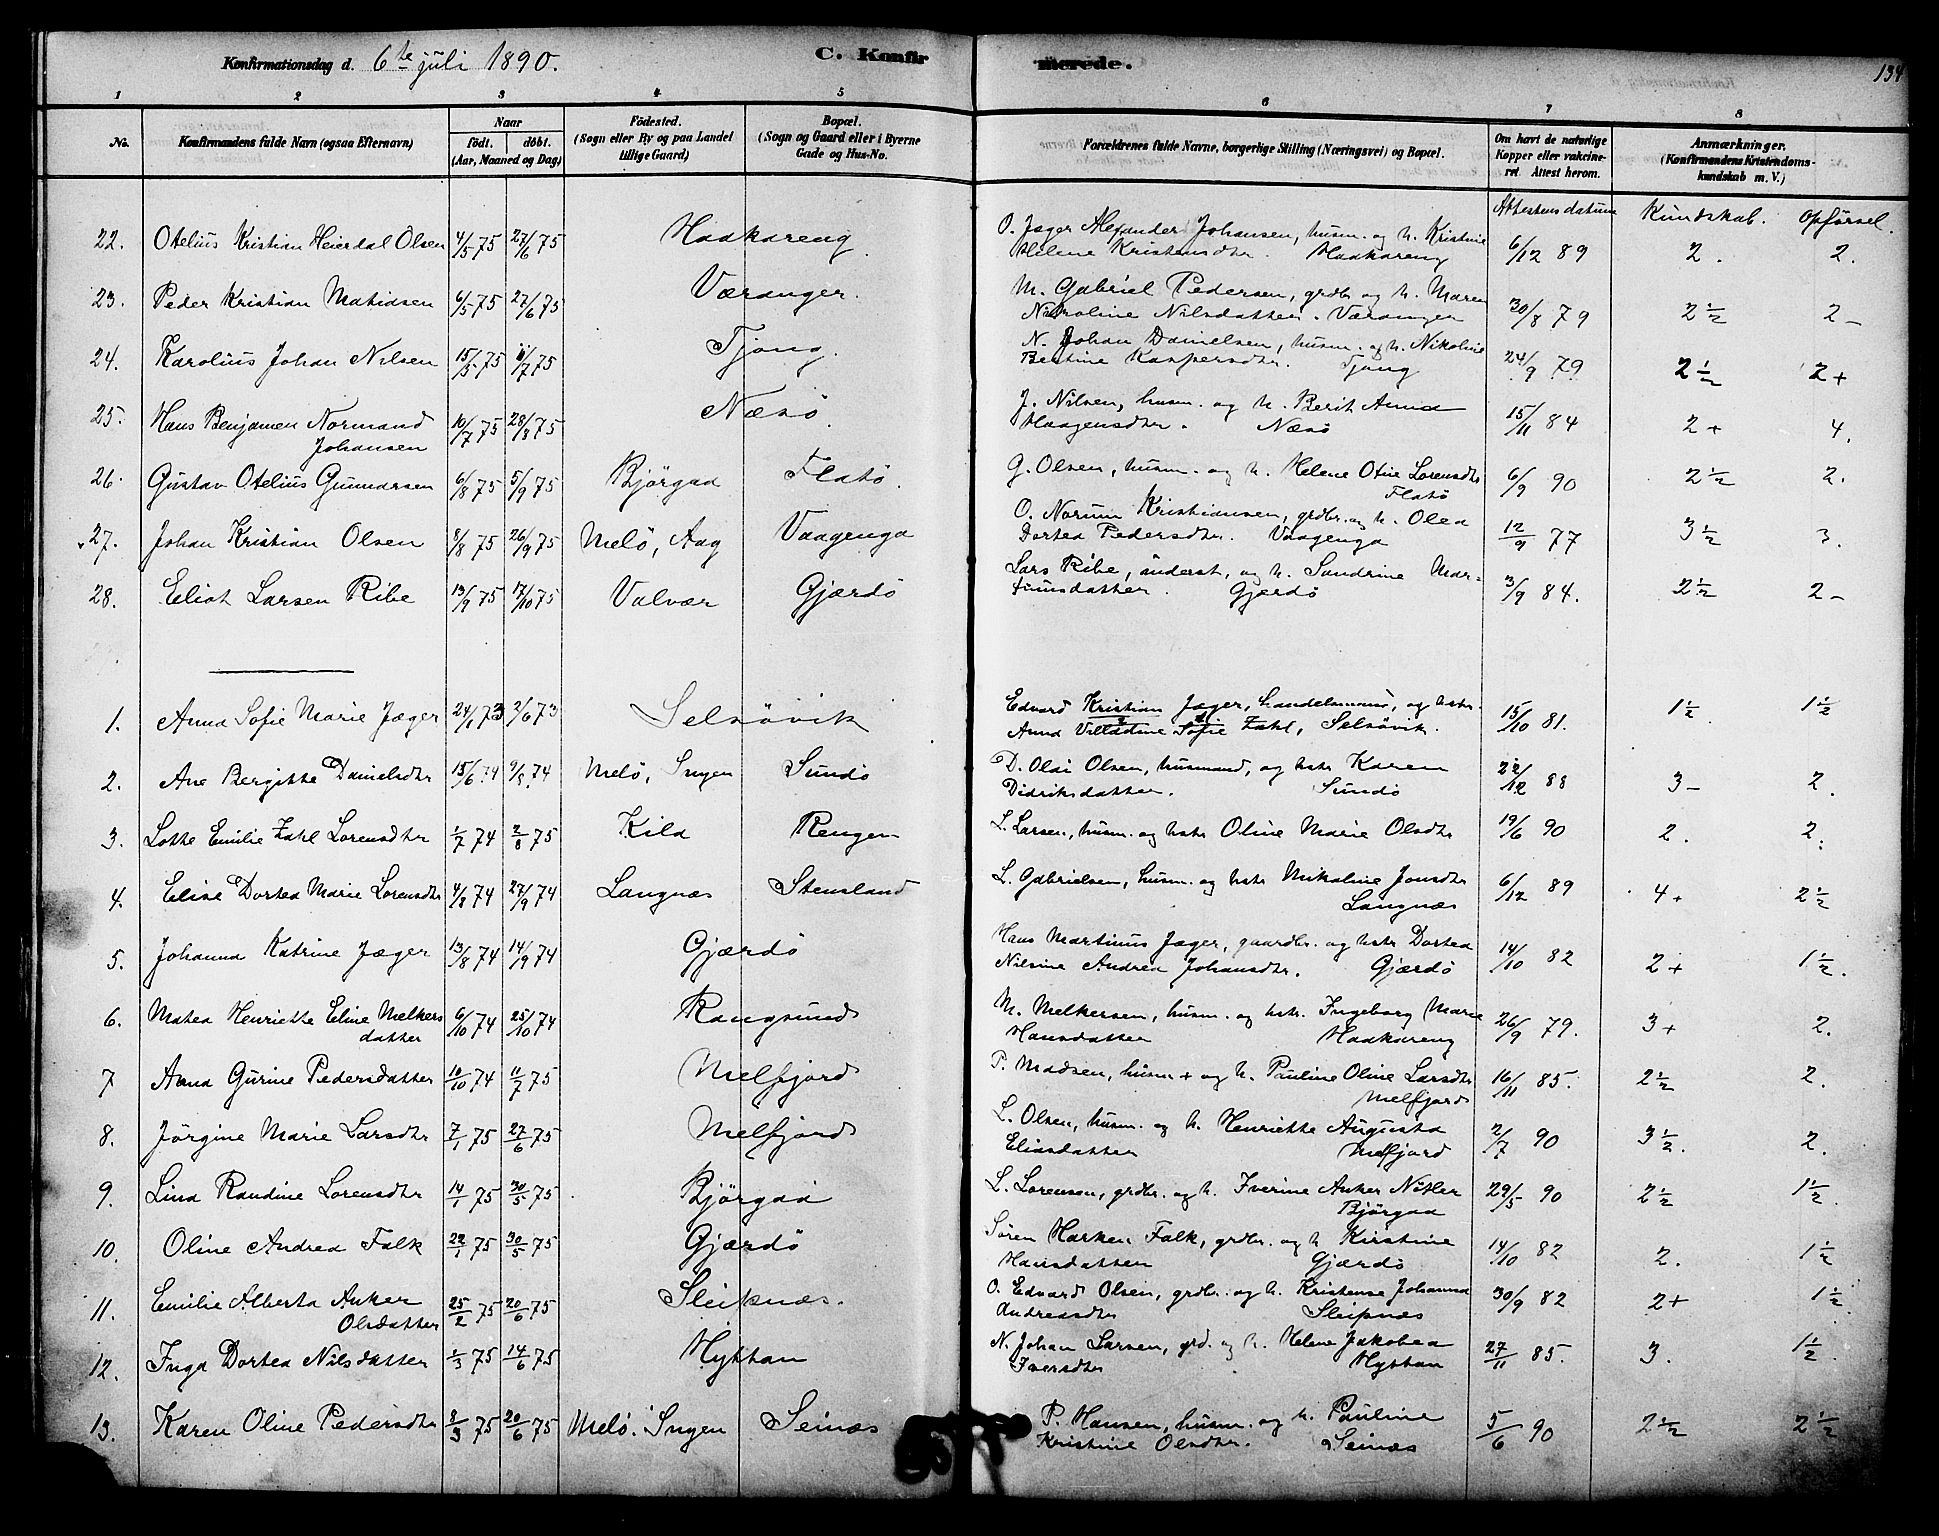 Konfirmationsdag d. 6te juli 1890.
C. Konfir merede.
134
1 2 3 4 5 6 7 8
No.
Konfirmandens fulde Navn (ogsaa Efternavn)
Naar
födt. döbt.
(Aar, Maaned og Dag)
Födested.
(Sogn eller By og paa Landet
tillige Gaard)
Bopæl.
(Sogn og Gaard eller i Byerne
Gade og Hus-No.
Forældrenes fulde Navne, borgerlige Stilling (Næringsvei) og Bopæl.
Om havt de naturlige
Kopper eller vakcine-
ret Attest herom.
Anmærkninger.
(Konfirmandens Kristendoms-
kundskab m. V.)
Attestens datum Kundskab. Opförsel.
22. Otelius Kristian Heierdal Olsen 4/5 75 27/6 75 Haakareng O. Jager Alexander Johansen, husm. og h. Kristine
Helene Kristensdtr. Haakareng 6/12 89 2. 2.
23. Peder Kristian Matiasen 6/5 75 27/6 75 Væranger. M. Gabriel Pedersen, grdbr og h. Maren
Nikoline Nilsdatter. Væranger 30/8 79 2 1/2 2-
24. Karolius Johan Nilsen 15/5 75 11/7 75 Tjong. N. Johan Danielsen, husm. og h. Nikoline
Bertine Kaspersdtr. Tjong 24/9 79. 2 1/2 2+
25. Hans Benjamen Normand
Johansen 10/7 75 28/8 75 Næsö. J. Nilsen, husm. og h. Berit Anna
Haagensdtr. Næsö 15/11 84 2+ 4.
26. Gustav Otelius Gunnarsen 6/8 75 5/9 75 Björgaa Flatö. G. Olsen, husm. og h. Helene Otine Lorensdtr
Flatö 6/9 90 2 1/2 2.
27. Johan Kristian Olsen 8/8 75 26/9 75 Melö, Aag Vaagenga O. Norum Kristiansen, grdbr. og h. Olea
Dortea Pedersdtr. Vaagenga 12/9 77 3 1/2 3.
28. Eliot Larsen Ribe 13/9 75 17/10 75 Valvær Gjærdö Lars Ribe, inderst, og h. Sandrine Mar-
tinusdatter. Gjærdö 3/9 84. 2 1/2 2-
1. Anna Sofie Marie Jæger 24/1 73 2/6 73 Selsövik Edvard Kristian Jæger, handelsmand, og hstr.
Anna Villadine Sofie Zahl, Selsövik. 15/10 81. 1 1/2. 1 1/2
2. Ane Bergitte Danielsdtr 15/6 74 9/8 74 Melö, Ingen Sundö D. Olai Olsen, husmand, og hstr Karen
Didriksdatter. Sundö 22/12 88 3- 2.
3. Lotte Emilie Zahl Lorensdtr 1/7 74 2/8 75 Kila Rengen L. Larsen, husm. og hstr Oline Marie Olsdtr 19/6 90 2. 2.
4. Eline Dortea Marie Lorensdtr 4/8 74 27/9 74 Langnæs Stensland L. Gabrielsen, husm. og hstr Nikoline Jonsdtr
Langnæs 6/12 89 4+ 2 1/2
5. Johanna Katrine Jæger 13/8 74 14/9 74 Gjærdö Hans Martinus Jæger, gaardbr. og hstr Dortea
Nilsine Andrea Johansdtr. Gjærdö 14/10 82 2+ 1 1/2.
6. Matea Henriette Eline Melkers
datter 6/10 74 25/10 74 Rangsund M. Melkersen, husm. og hstr. Ingeborg Marie
Hansdatter Haakareng 26/9 79. 3+ 2.
7 Anna Gurine Pedersdatter 10/10 74 11/7 75 Melfjord P. Madsen, husm. og h. Pauline Oline Larsdtr
Melfjord 16/11 85. 2 1/2 2.
8. Jörgine Marie Larsdtr 7/1 75 27/6 75 Melfjord L. Olsen, husm. og h. Henriette Augusta
Eliasdatter Melfjord 2/7 90 3 1/2. 2.
9. Lina Randine Lorensdtr 14/1 75 30/5 75 Björgaa L. Lorensen, grdbr. og h. Iverine Anker Nitler
Björgaa 29/5 90 2 1/2 1 1/2.
10. Oline Andrea Falk 22/1 75 30/5 75 Gjærdö Sören Harken Falk, grdbr. og h Kirstine
Hansdatter Gjærdö 14/10 82 2. 1 1/2
11. Emilie Alberta Anker
Olsdatter 25/2 75 20/6 75 Sleipnæs. O. Edvard Olsen, grdbr. og h. Kristense Johanna
Andreasdtr Sleipnæs 30/9 82 2+ 1 1/2
12. Inga Dortea Nilsdatter 1/3 75 14/6 75 Hyttan N. Johan Larsen, grd. og h. Helene Jakobea
Iversdtr Hyttan 27/11 85. 3. 1 1/2.
13. Karen Oline Pedersdtr 8/3 75 20/6 75 Melö. Ingen Seinæs P. Hansen, husm. og h. Pauline
Kristine Olsdtr. Seinæs 5/6 90 2 1/2 2 1/2